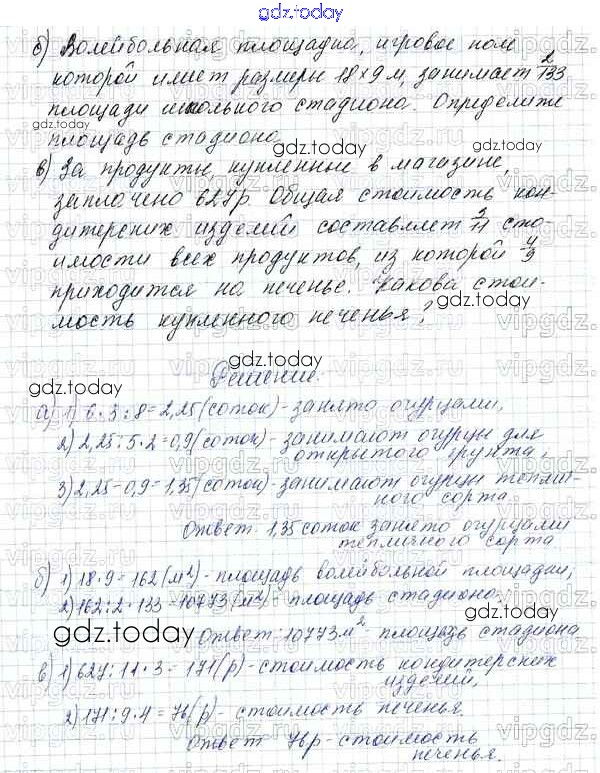 gdz.today
б) Волейбольная площадка, игровое поле
которой имеет размеры 18×9 м, занимает 2/133
площади школьного стадиона. Определите
gdz.today
площадь стадиона
в) За продукты, купленные в магазине,
заплачено 627р Общая стоимость кон-
gdz.today
дитерских изделий составляет 3/11 сто-
имости всех продуктов, из которой 4/9
приходится на печенье. Какова стои-
gdz.today
мость купленного печенья?
gdz.today
Решение.
gdz.today
а) 1) 6·3:8=2,25(соток)-занято огурцами,
2) 2,25:5·2=0,9(соток)-занимают огурцы для
открытого грунта,
3) 2,25-0,9=1,35(соток)-занимают огурцы теплич-
ного сорта.
Ответ 1,35 соток занято огурцами
тепличного сорта
б) 1) 18·9=162(м²)-площадь волейбольной площадки;
2) 162:2·133=10773(м²)-площадь стадиона.
gdz.today
Ответ: 10773м²-площадь стадиона
в) 1) 627:11·3=171(р)-стоимость кондитерских
изделий,
2) 171:9·4=76(р)-стоимость печенья.
Ответ 76р-стоимость
печенья.
gdz.today